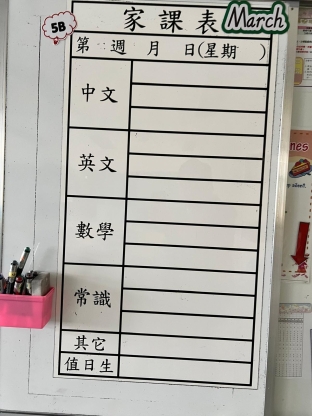 5B
家課表 March
第 週 月 日(星期 )
中文
英文
數學
常識
其它
值日生